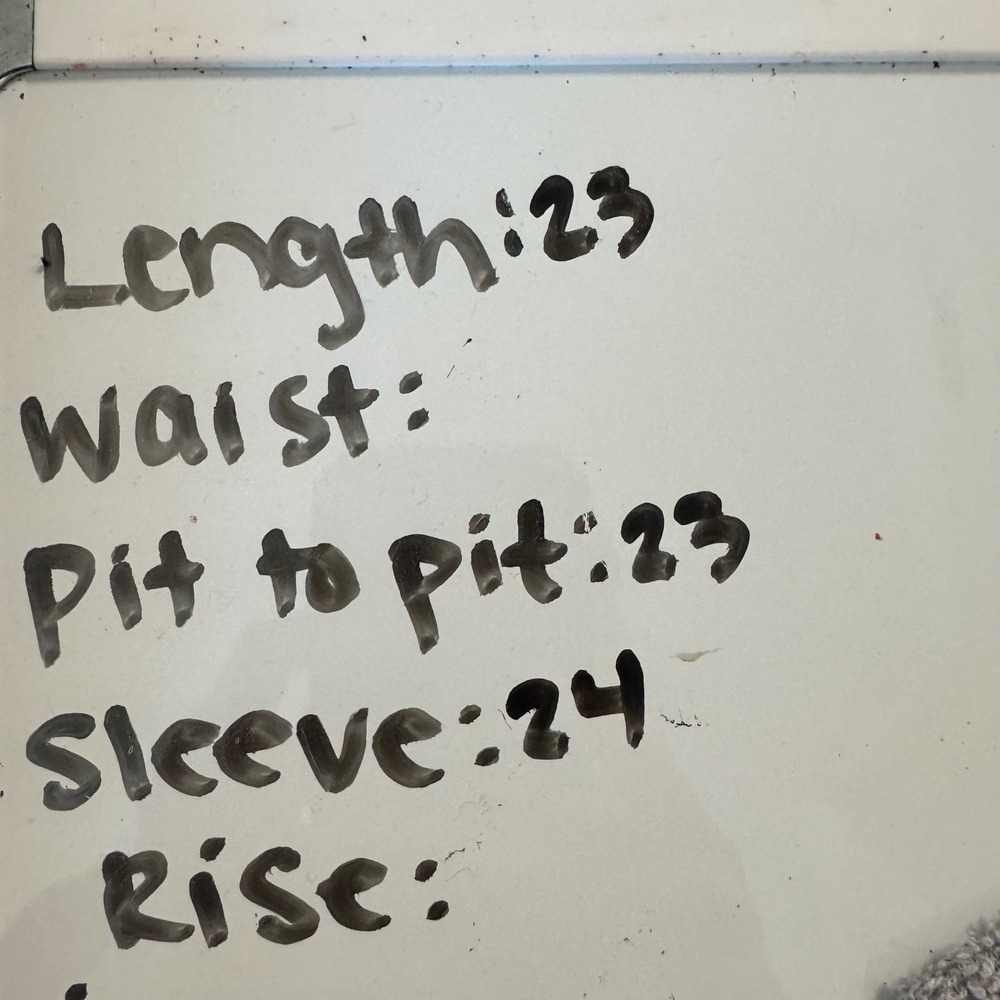 Length:23
Waist:
Pit to pit:23
Sleeve:24
Rise: